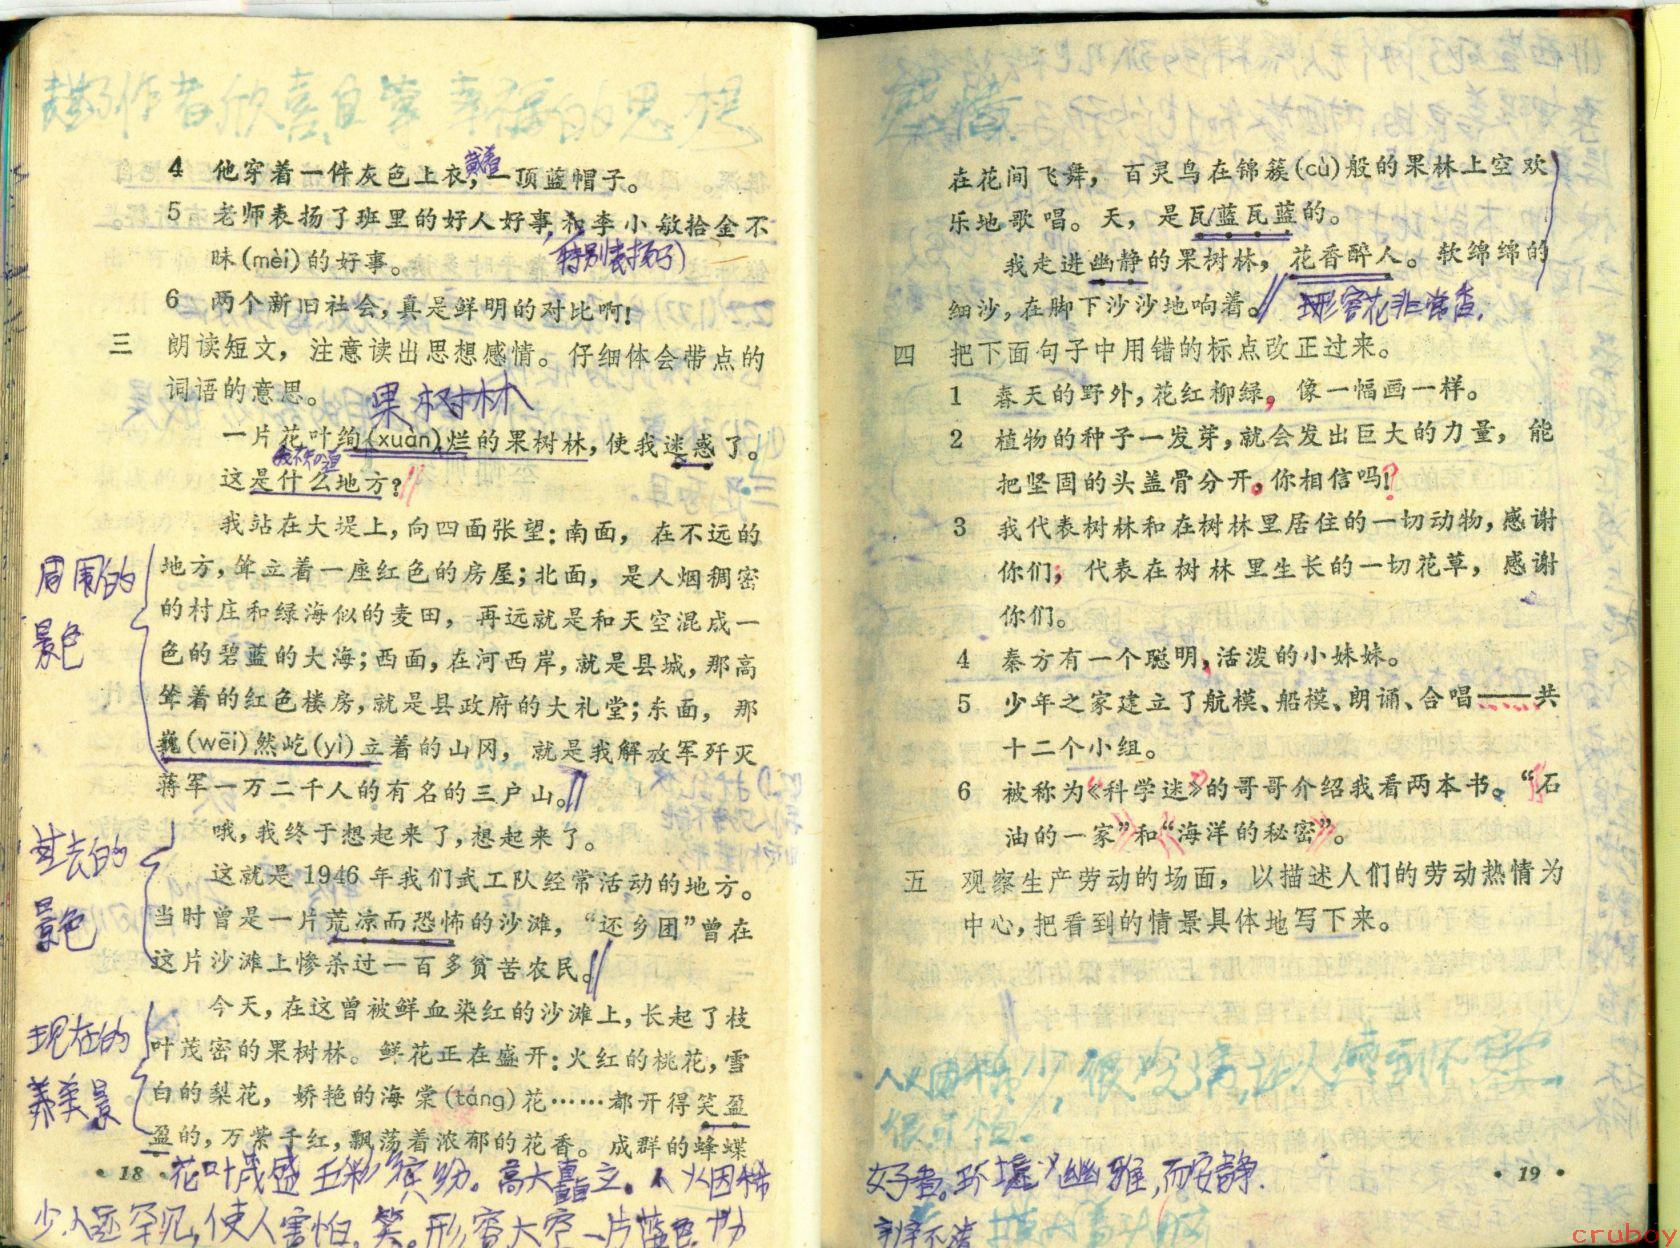 作者欣喜自幸福的思想
4 他穿着一件灰色上衣,戴着一顶蓝帽子。
5 老师表扬了班里的好人好事,和李小敏拾金不
(特别表扬了)
昧(mèi)的好事。
6 两个新旧社会,真是鲜明的对比啊!
三 朗读短文,注意读出思想感情。仔细体会带点的
词语的意思。
果树林
一片花叶绚(xuàn)烂的果树林,使我迷惑了。
我不知道
这是什么地方?
我站在大堤上,向四面张望:南面,在不远的
地方,耸立着一座红色的房屋;北面,是人烟稠密
的村庄和绿海似的麦田,再远就是和天空混成一
色的碧蓝的大海;西面,在河西岸,就是县城,那高
耸着的红色楼房,就是县政府的大礼堂;东面,那
巍(wēi)然屹(yì)立着的山冈,就是我解放军歼灭
蒋军一万二千人的有名的三户山。
周围的
景色
哦,我终于想起来了,想起来了。
这就是1946年我们武工队经常活动的地方。
当时曾是一片荒凉而恐怖的沙滩,“还乡团”曾在
这片沙滩上惨杀过一百多贫苦农民。
过去的
景色
今天,在这曾被鲜血染红的沙滩上,长起了枝
叶茂密的果树林。鲜花正在盛开:火红的桃花,雪
白的梨花,娇艳的海棠(táng)花……都开得笑盈
盈的,万紫千红,飘荡着浓郁的花香。成群的蜂蝶
现在的
美景
·18·
花叶茂盛五彩缤纷。高大矗立。人烟稀
少人迹罕见,使人害怕,笑。形容天空一片蓝色
在花间飞舞,百灵鸟在锦簇(cù)般的果林上空欢
乐地歌唱。天,是瓦蓝瓦蓝的。
我走进幽静的果树林,花香醉人。软绵绵的
细沙,在脚下沙沙地响着。
形容花非常香.
四 把下面句子中用错的标点改正过来。
1 春天的野外,花红柳绿,像一幅画一样。
2 植物的种子一发芽,就会发出巨大的力量,能
把坚固的头盖骨分开,你相信吗!?
3 我代表树林和在树林里居住的一切动物,感谢
你们;代表在树林里生长的一切花草,感谢
你们。
4 秦方有一个聪明,活泼的小妹妹。
5 少年之家建立了航模、船模、朗诵、合唱——共
十二个小组。
6 被称为《科学迷》的哥哥介绍我看两本书。“石
油的一家”和“海洋的秘密”。
五 观察生产劳动的场面,以描述人们的劳动热情为
中心,把看到的情景具体地写下来。
人烟稀少,很荒凉,让人感到
很可怕。
好看。环境幽雅,而安静.
·19·
cruboy